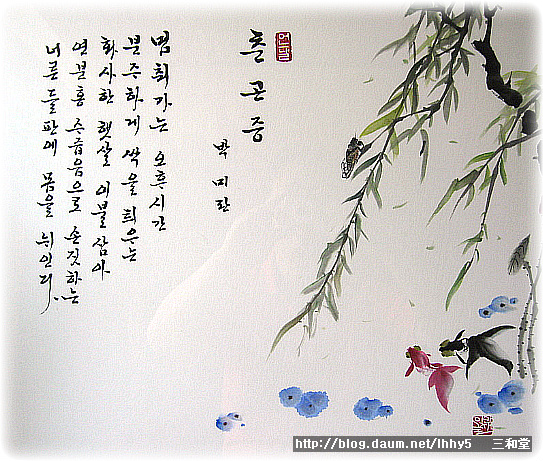 춘곤증
박미란
멈춰가는 오후시간
분주하게 싹을 틔우는
화사한 햇살 이불삼아
연분홍 수줍음으로 손짓하는
너른 들판에 몸을 뉘인다.
http://blog.daum.net/lhhy5 三和堂